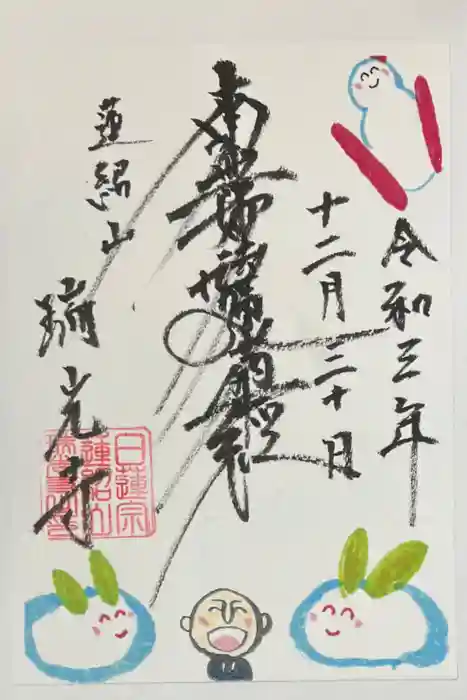 令和三年
十二月三十日
南無妙法蓮華經
蓮紹山
瑞光寺
日蓮宗
蓮紹山
瑞光寺